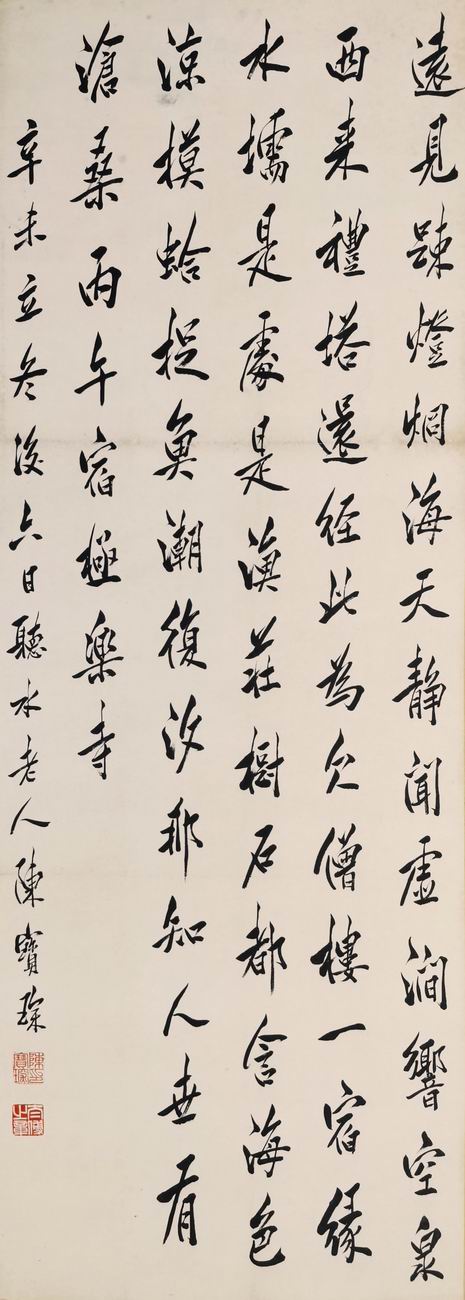 遠見踈燈烱海天靜聞虛澗響空泉
西来禮塔還经此為欠僧樓一宿緣
水壖是處是漁莊樹石都含海色
涼摸蛤捉魚潮復汐那知人世有
滄桑丙午宿極樂寺
辛未立冬後六日聽水老人陳寶琛
陳印寶琛